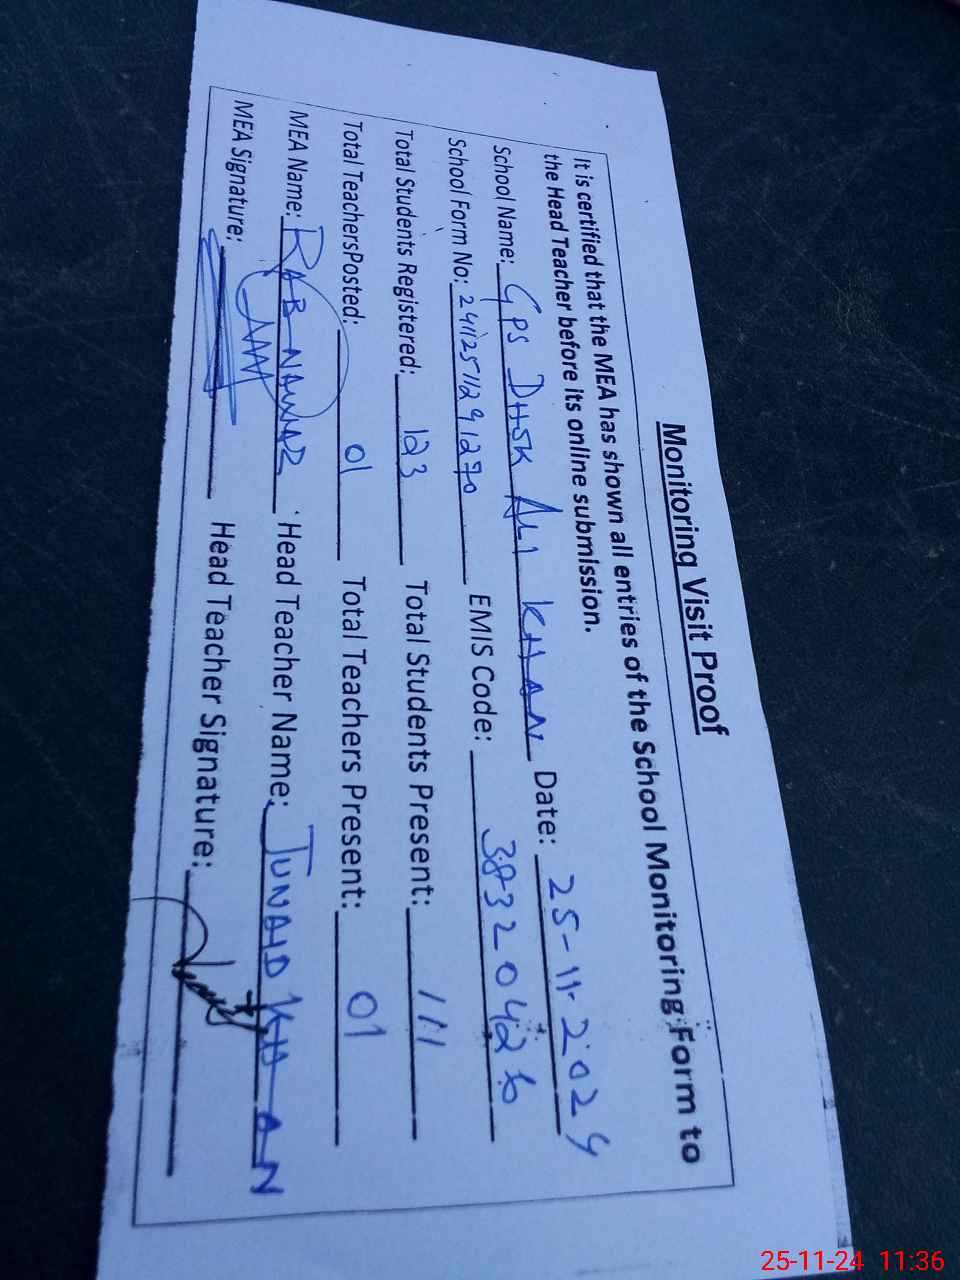 Monitoring Visit Proof
It is certified that the MEA has shown all entries of the School Monitoring Form to
the Head Teacher before its online submission.
School Name: GPS DHSK ALI KHAN Date: 25-11-2024
School Form No: 24112511291270 EMIS Code: 38320426
Total Students Registered: 123 Total Students Present: 111
Total TeachersPosted: 01 Total Teachers Present: 01
MEA Name: RAB NAWAZ Head Teacher Name: JUNAID KHAN
MEA Signature: Head Teacher Signature:
25-11-24 11:36